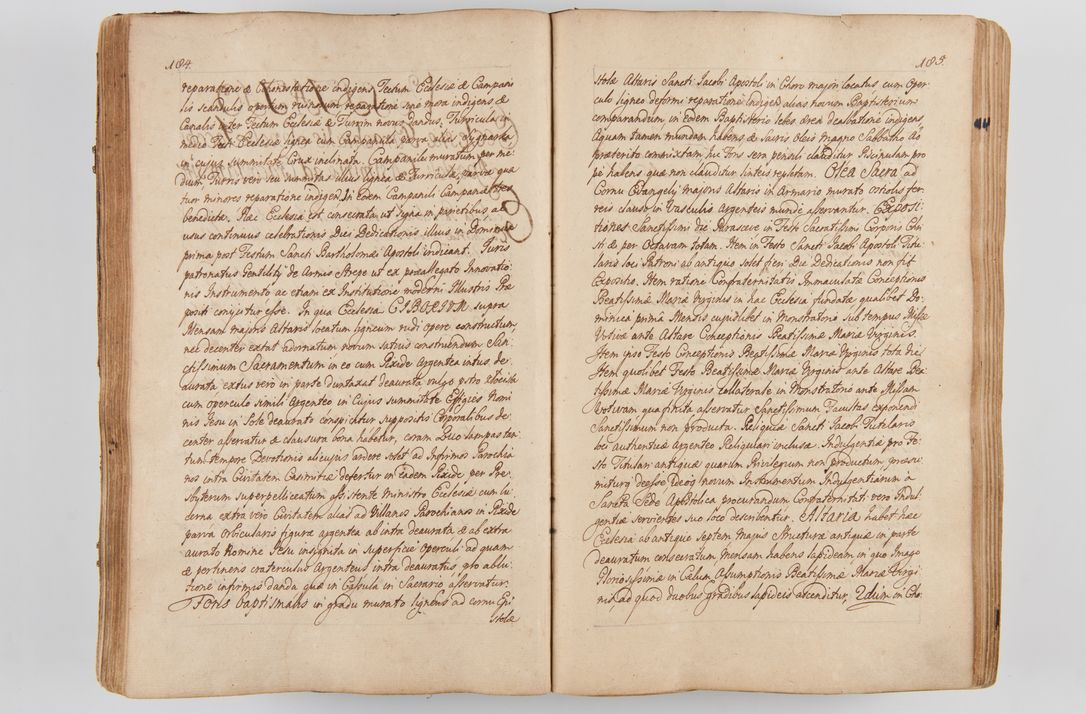 184.
reparatione & Cohonestatione indigens Tectum Ecclesiæ & Campani
lis scandulis opertum ruinosum reparatione sine mora indigens &
Canalis inter Tectum Ecclesiæ & Turrim novus dandus, Turricula in
medio Tecti Ecclesiæ lignea cum Campanula parva illius
in cujus summitate Crux inclinata. Campanile muratum per me
dium, Turris vero seu summitas illius lignea & Turriculæ parvæ qua
tuor minores reparatione indigen. In Eodem Campanili Campanæ tres
benedictæ. Hæc Ecclesia est consecrata, ut signa in parietibus ac
usus continuus celebrationis Diei Dedicationis illius in Dominica
prima post Festum Sancti Bartholomæi Apostoli indicant. Juris
patronatus Gentilitij de Armis Strepe ut ex præallegato Innovatio
nis Instrumento ac etiam ex Institutione moderni Illustris Præ
positi conjicitur esse. In qua Ecclesia CIBORIUM supra
Mensam majoris Altaris locatum ligneum rudi opere constructum
nec decenter extat adornatum novum satius construendum San
ctissimum Sacramentum in eo cum Pixide Argentea intus de
aurata extus vero in parte duntaxat deaurata vulgo
cum operculo simili Argenteo in Cujus summitate Effigies Nomi
nis Jesu in Sole deaurato conspicitur suppositis Corporalibus de
center asservatur & clausura bona habetur, coram Quo lampas tan
tum tempore Devotionis alicujus ardere solet ad Infirmos Parochia
nos intra Civitatem Casimiriæ defertur in eadem Pixide per Pres
byterum superpelliceatum assistente ministro Ecclesiæ cum lu
cerna extra vero Civitatem alias ad Villanos Parochianos in Pixide
parva Orbicularis figuræ argentea ab intra deaurata & ab extra
aurato Nomine Jesu insignita in superficie Operculi ad quam
& pertinens craterculus Argenteus intra deauratus pro ablu
tione infirmis danda quæ in Capsula in Sacrario asservatur.
Fons baptismalis in gradu murato ligneus ad cornu Epi
stolæ
185.
stolæ Altaris Sancti Jacobi Apostoli in Choro majori locatus cum Oper
culo ligneo deformi reparatione indiget alias novum Baptisterium
comparandum, in eodem Baptisterio lebes ærea dealbatione indigens
Aquam tamen mundam habens & Sacris Oleis magno Sabbatho de
præterito commixtam, hic Fons sera pensili clauditur Piscinulam pro
pe habens quæ non clauditur linteis repletam. Olea Sacra ad
Cornu Evangelij majoris Altaris in Armario murato ostiolis fer
reis clauso in Vasculis Argenteis munde asservantur. Exposi
tiones Sanctissimi die Parasceve in Festo Sacratissimi Corporis Chri
sti & per Octavam totam. Item in Festo Sancti Jacobi Apostoli Titu
laris loci Patroni ab antiquo solet fieri Die Dedicationis non fit
Expositio. Item ratione Confraternitatis Immaculatæ Conceptionis
Beatissimæ Mariæ Virginis in hac Ecclesia fundatæ qualibet Do
minica prima Mensis cujuslibet in Monstratorio sub tempus Missæ
Votivæ ante Altare Conceptionis Beatissimæ Mariæ Virginis.
Item ipso Festo Conceptionis Beatissimæ Mariæ Virginis tota die
Item quolibet Festo Beatissimæ Mariæ Virginis ante Altare Bea
tissimæ Mariæ Virginis collaterale in Monstratorio ante Missam
Votivam qua finita asservatur Sanctissimum Facultas exponendi
Sanctissimum non producta. Reliquiæ Sancti Jacobi Titularis
loci authenticæ Argenteo Reliquiari inclusæ. Indulgentiæ pro Fe
sto Titulari antiquæ quarum Privilegium non productum, præsu
mitur deesse Ideoq novum Instrumentum Indulgentiarum a
Sancta Sede Apostolica procurandum Confraternitati vero Indul
gentiæ servientes suo loco describentur. Altaria habet hæc
Ecclesia ab antiquo Septem Majus Structuræ antiquæ in parte
deauratum consecratum Mensam habens lapideam in quo Imago
Gloriosissimæ in Cælum Assumptionis Beatissimæ Mariæ Virgi
nis, ad quod duobus gradibus lapideis ascenditur, 2dum in Cho